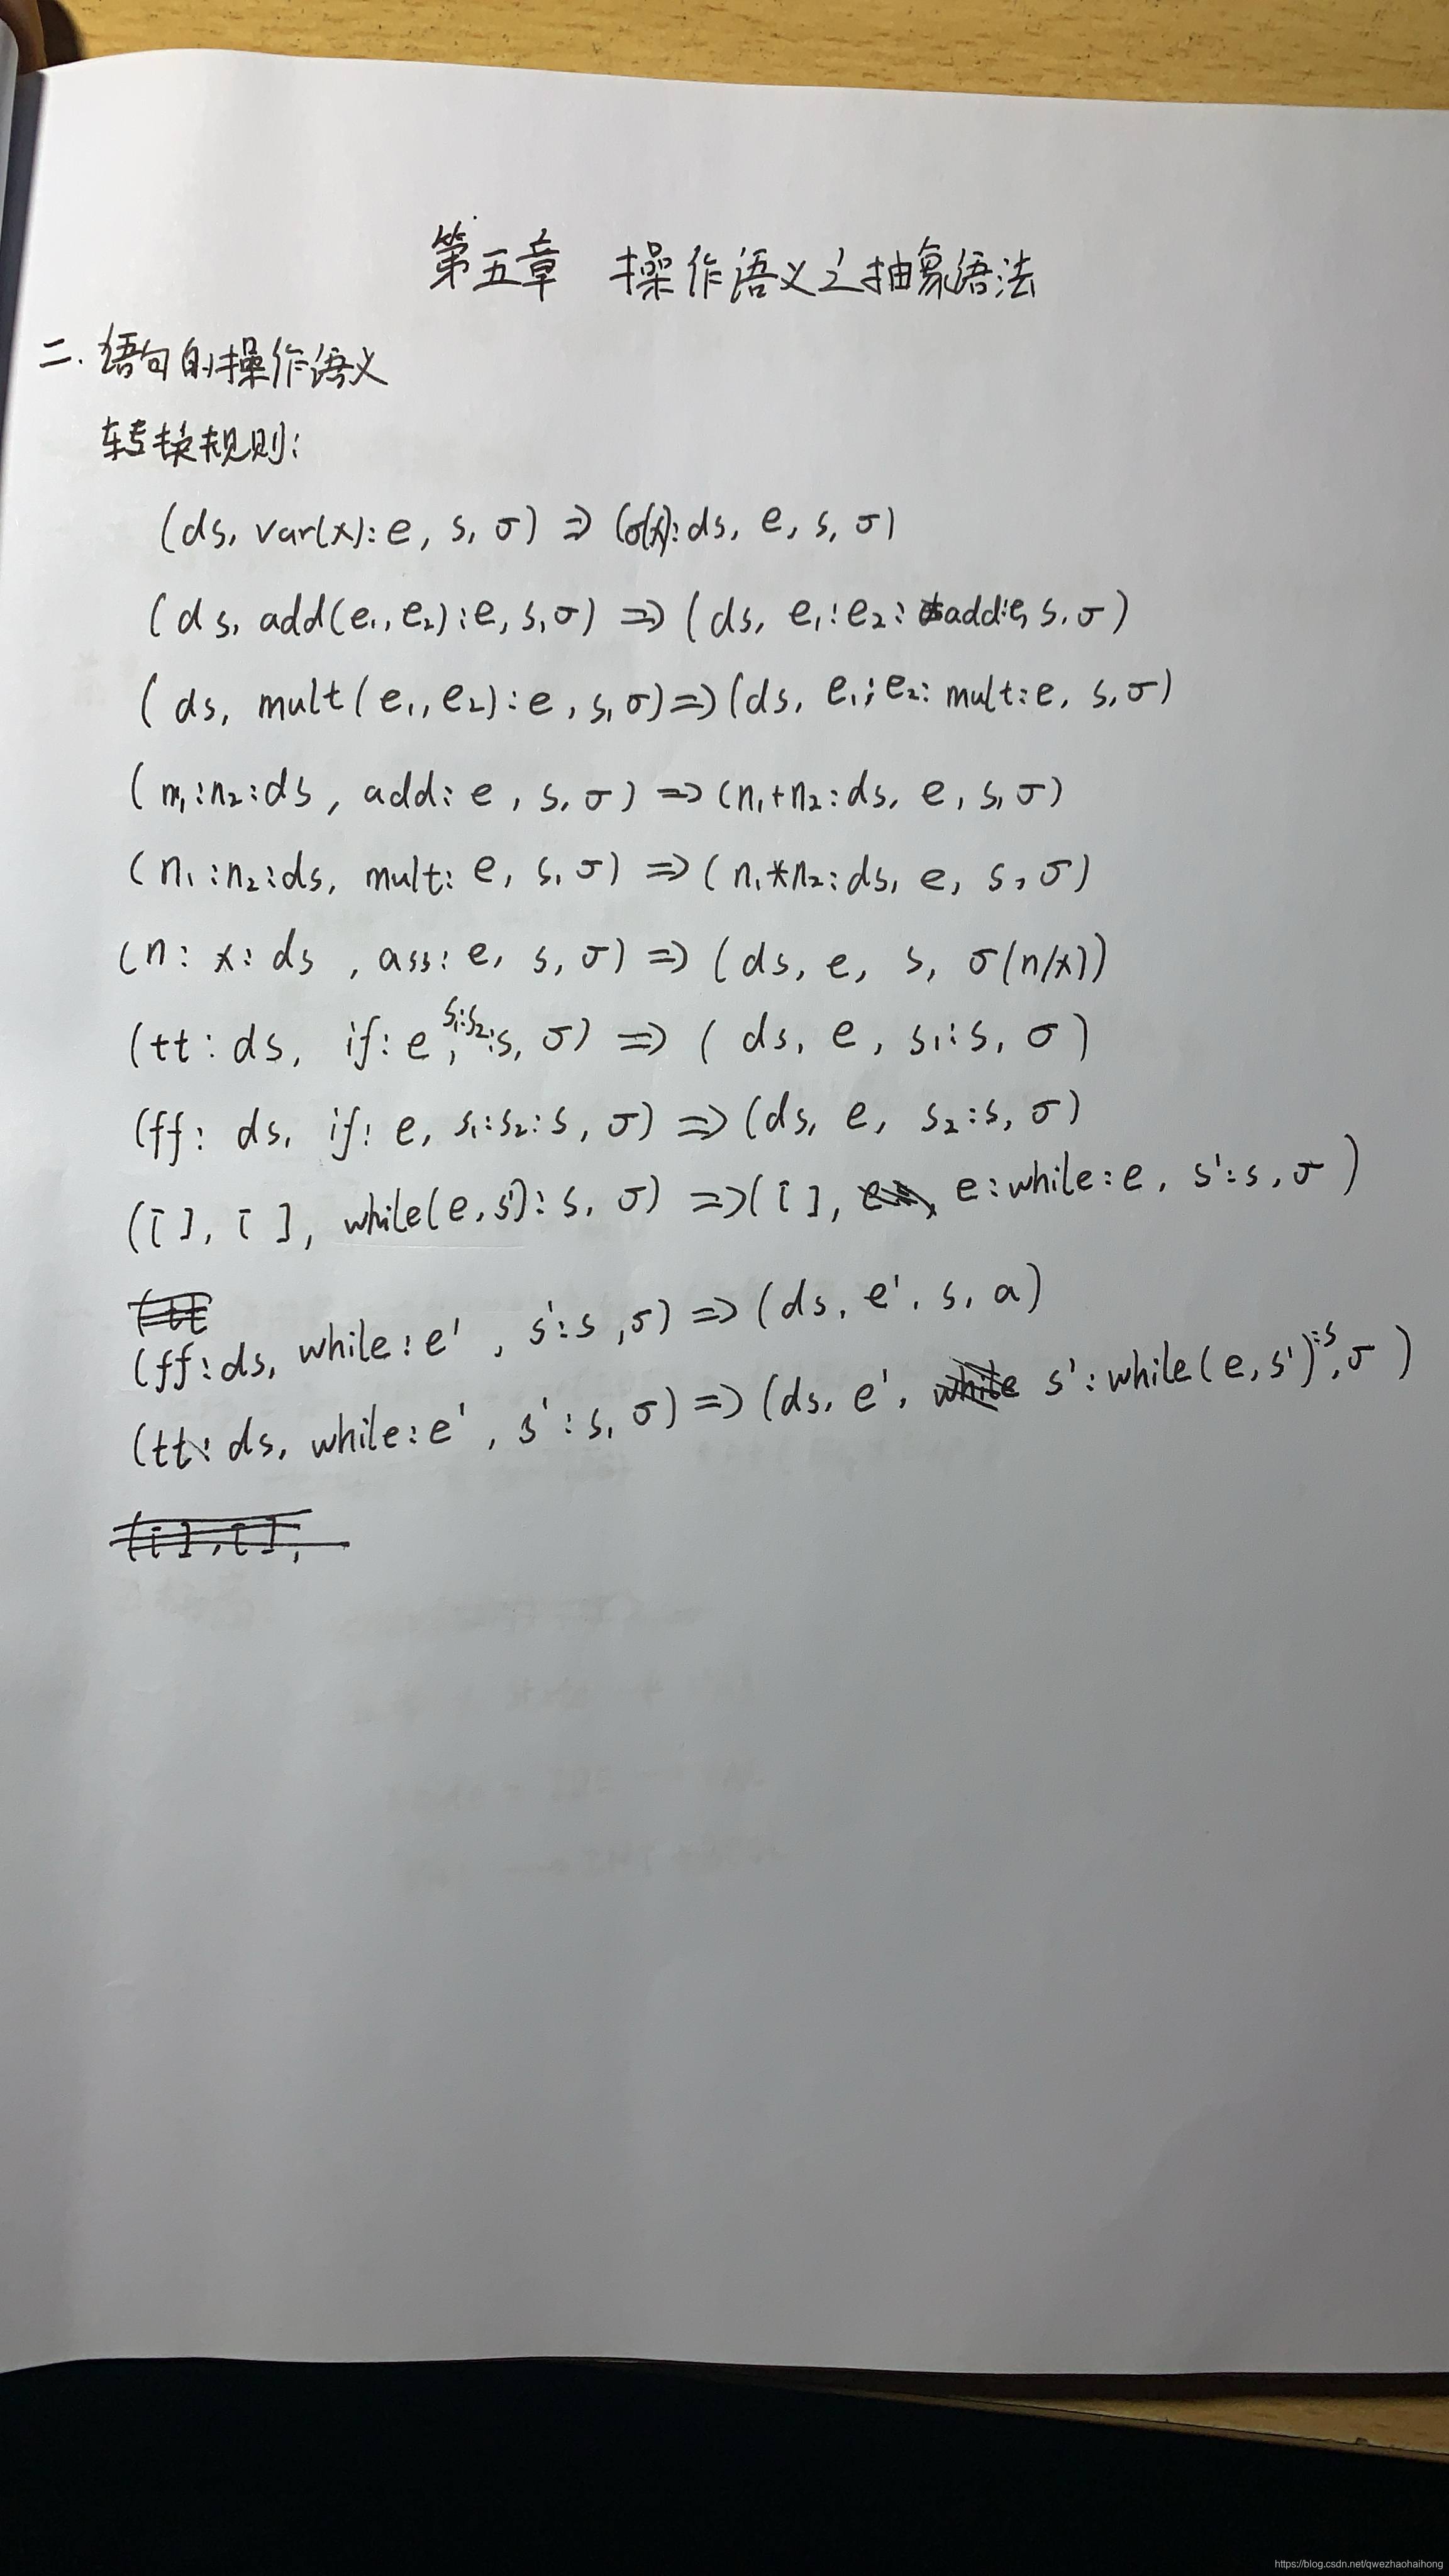 第五章 操作语义之抽象语法
二. 语句的操作语义
转换规则:
(ds, var(x):e, s, σ) ⇒ (σ(x):ds, e, s, σ)
(ds, add(e₁, e₂):e, s, σ) ⇒ (ds, e₁:e₂:add:e, s, σ)
(ds, mult(e₁, e₂):e, s, σ) ⇒ (ds, e₁;e₂:mult:e, s, σ)
(n₁:n₂:ds, add:e, s, σ) ⇒ (n₁+n₂:ds, e, s, σ)
(n₁:n₂:ds, mult:e, s, σ) ⇒ (n₁*n₂:ds, e, s, σ)
(n:x:ds, ass:e, s, σ) ⇒ (ds, e, s, σ(n/x))
(tt:ds, if:e, s₁:s₂:s, σ) ⇒ (ds, e, s₁:s, σ)
(ff:ds, if:e, s₁:s₂:s, σ) ⇒ (ds, e, s₂:s, σ)
([ ], [ ], while(e, s'):s, σ) ⇒ ([ ], e:while:e, s':s, σ)
(ff:ds, while:e', s':s, σ) ⇒ (ds, e', s, a)
(tt:ds, while:e', s':s, σ) ⇒ (ds, e', s':while(e, s'):s, σ)
([ ], [ ],
https://blog.csdn.net/qwezhaohaihong